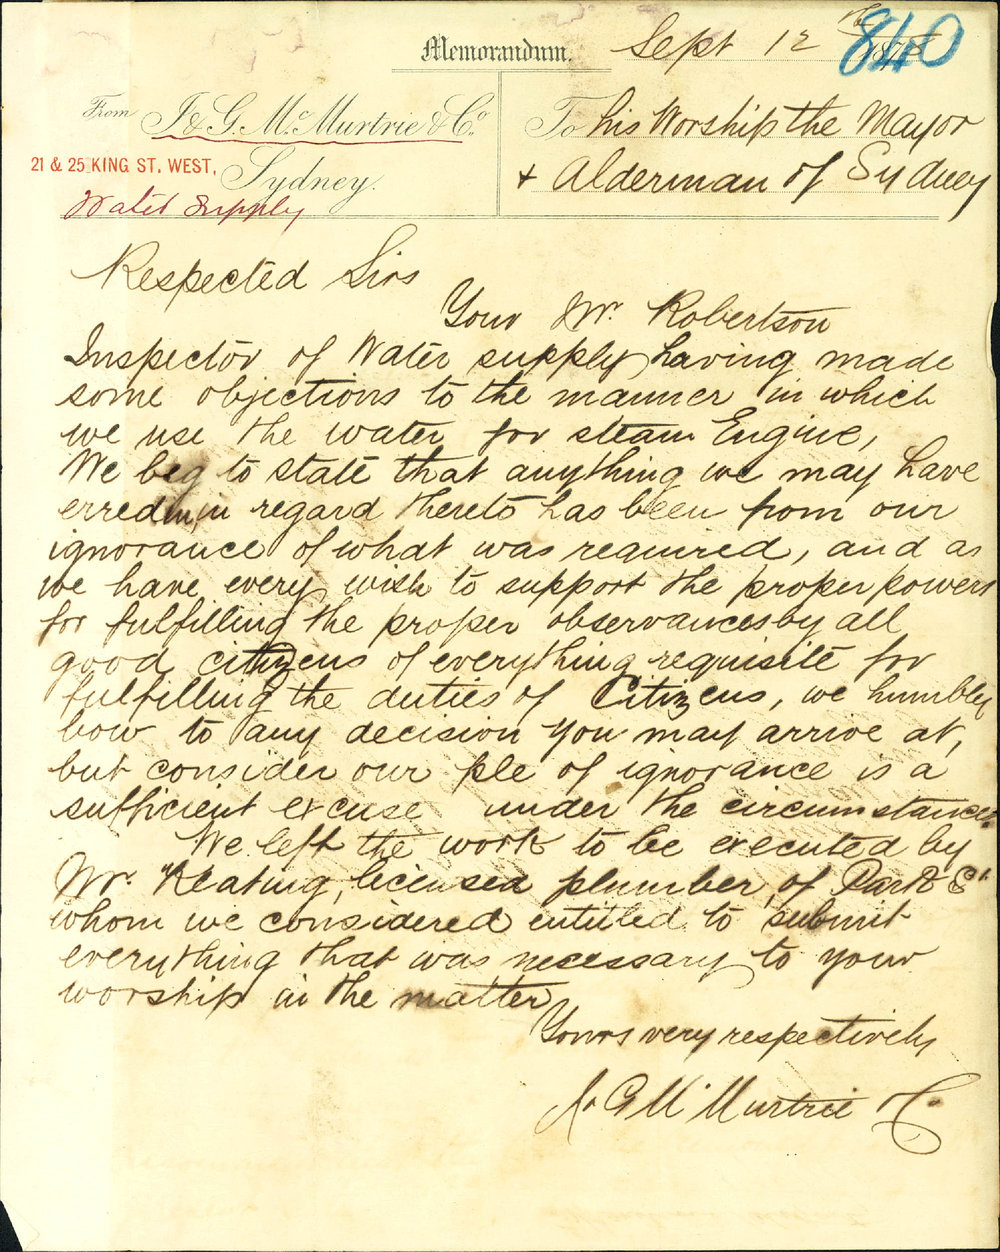 Memorandum. Sept 12th 187
840
From J & G. McMurtrie & Co.
To his Worship the Mayor
21 & 25 KING ST. WEST,
Sydney.
+ Alderman of Sydney
Water Supply
Respected Sirs
Your Mr. Robertson
Inspector of Water supply having made
some objections to the manner in which
we use the water for steam Engine,
We beg to state that anything we may have
erred in regard thereto has been from our
ignorance of what was required, and as
we have every wish to support the proper powers
for fulfilling the proper observances by all
good citizens of everything requisite for
fulfilling the duties of Citizens, we humbly
bow to any decision you may arrive at,
but consider our ple of ignorance is a
sufficient excuse under the circumstances.
We left the work to be executed by
Mr. Keating, licensed plumber, of Park St.
whom we considered entitled to submit
everything that was necessary to your
worship in the matter
Yours very respectively
J & G McMurtrie & Co.